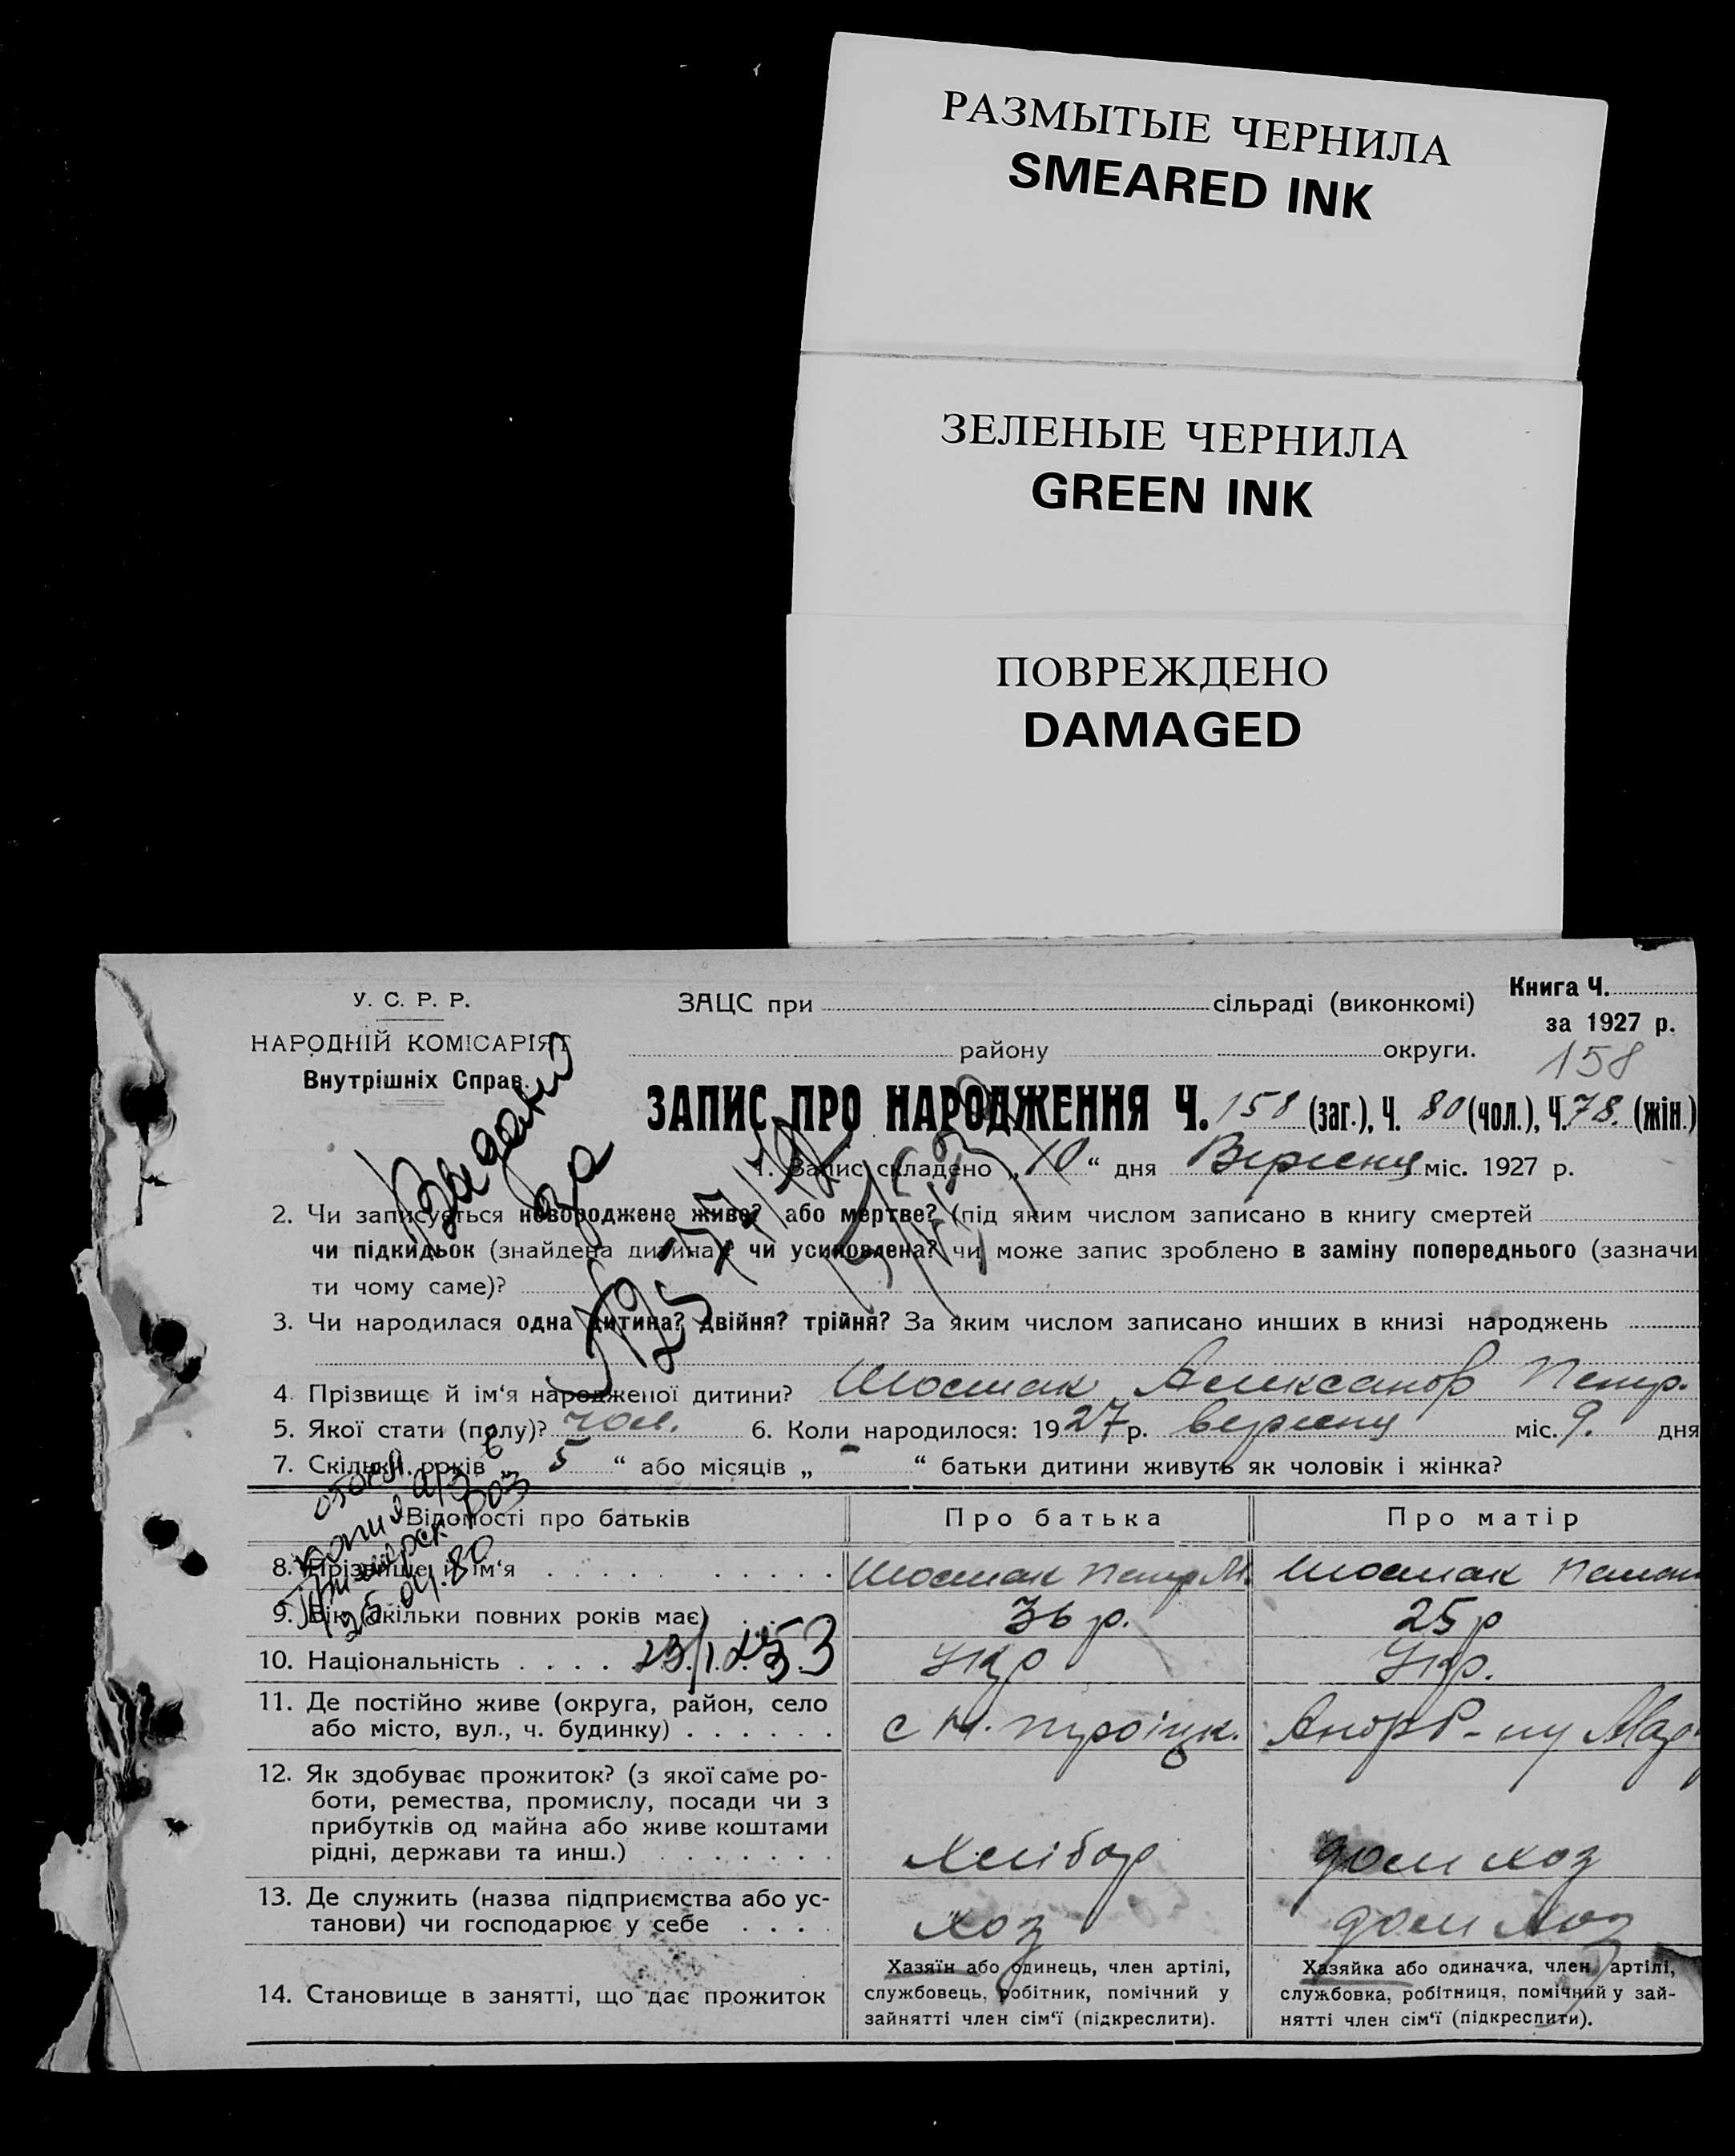 РАЗМЫТЫЕ ЧЕРНИЛА
SMEARED INK
ЗЕЛЕНЫЕ ЧЕРНИЛА
GREEN INK
ПОВРЕЖДЕНО
DAMAGED
У. С. Р. Р.
НАРОДНІЙ КОМІСАРІЯТ
Внутрішніх Справ.
ЗАЦС при сільраді (виконкомі)
району округи.
Книга Ч.
за 1927 р.
158
ЗАПИС ПРО НАРОДЖЕННЯ Ч. 158 (заг.), Ч. 80 (чол.), Ч. 78. (жін.)
1. Запис складено „ 10 “ дня Вересня міс. 1927 р.
2. Чи записується новороджене живе? або мертве? (під яким числом записано в книгу смертей
чи підкидьок (знайдена дитина)? чи усиновлена? чи може запис зроблено в заміну попереднього (зазначи
ти чому саме)?
3. Чи народилася одна дитина? двійня? трійня? За яким числом записано инших в книзі народжень
4. Прізвище й ім‘я народженої дитини? Шостак Александр Петр.
5. Якої стати (полу)? чол. 6. Коли народилося: 1927 р. вересня міс. 9. дня
7. Скільки років „ 5 “ або місяців „ – “ батьки дитини живуть як чоловік і жінка?
Відомості про батьків Про батька Про матір
8. Прізвище й ім‘я Шостак Петр М. Шостак
9. Вік (скільки повних років має) 36 р. 25 р
10. Національність Укр Укр.
11. Де постійно живе (округа, район, село
або місто, вул., ч. будинку) с М. Троіцк.
12. Як здобуває прожиток? (з якої саме ро-
боти, ремества, промислу, посади чи з
прибутків од майна або живе коштами
рідні, держави та инш.) Хлібор дом хоз
13. Де служить (назва підприємства або ус-
танови) чи господарює у себе хоз дом хоз
14. Становище в занятті, що дає прожиток
Хазяїн або одинець, член артілі,
службовець, робітник, помічний у
зайнятті член сім‘ї (підкреслити).
Хазяйка або одиначка, член артілі,
службовка, робітниця, помічний у зай-
нятті член сім‘ї (підкреслити).
25.04.80